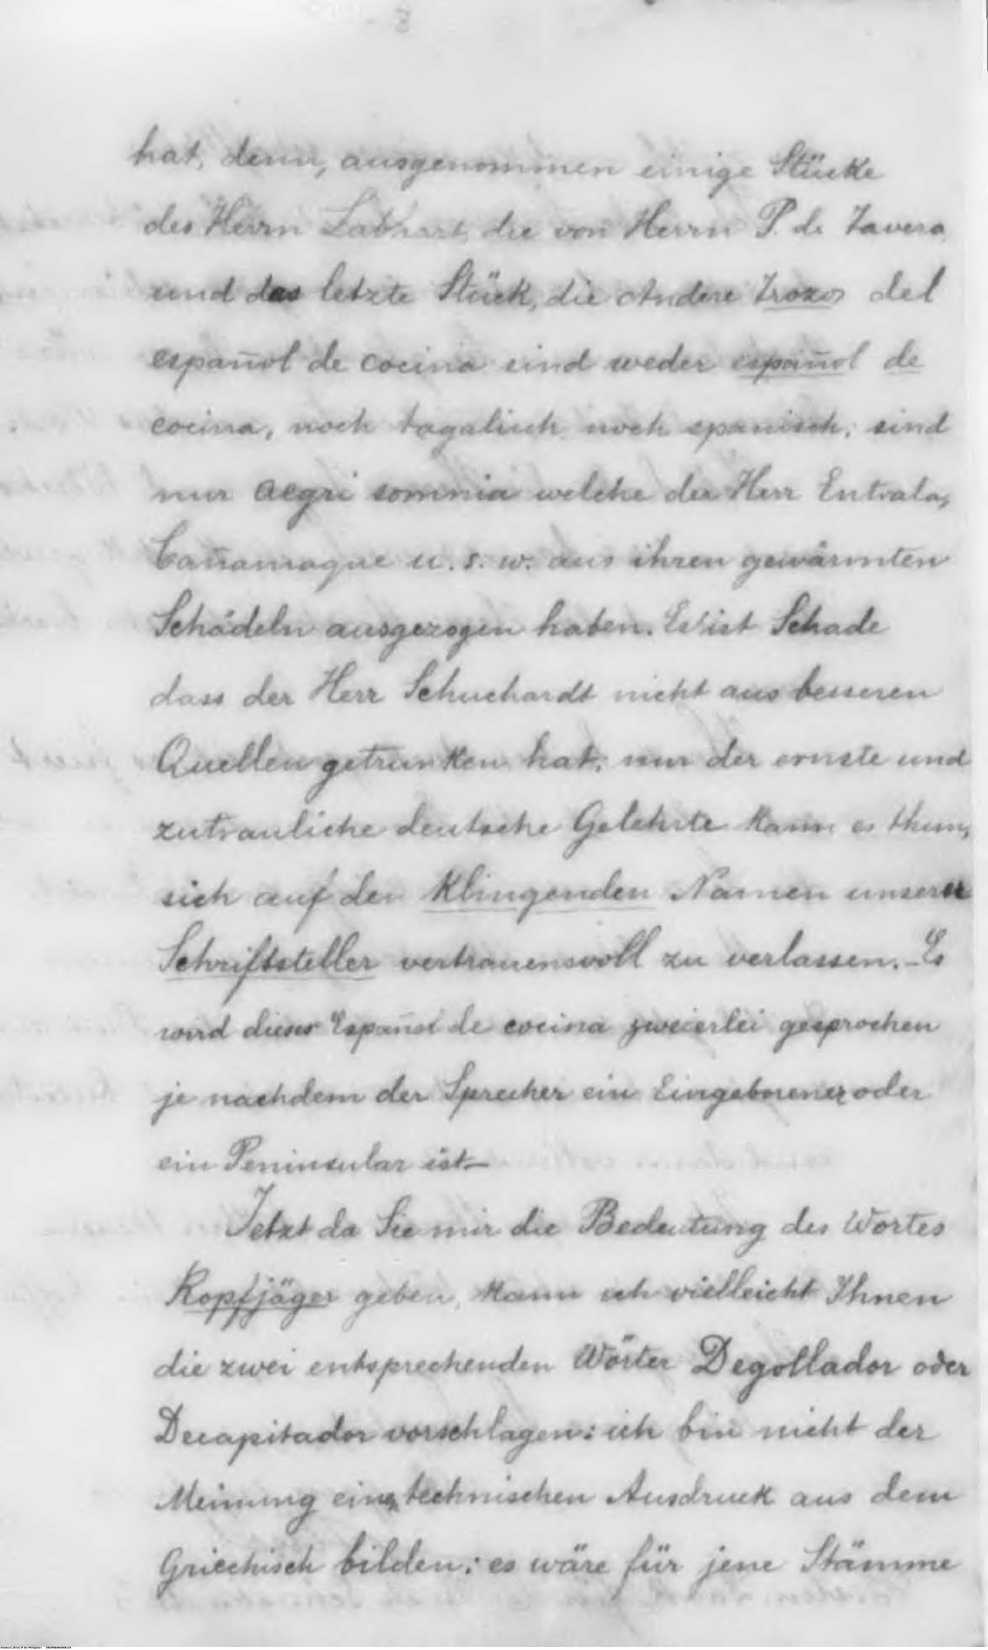 hat, denn, ausgenommen einige Stücke
des Herrn Labhart, die von Herrn P. de Tavera
und das letzte Stück, die Andere Trozos del
español de cocina sind weder español de
cocina, noch tagalisch noch spanisch; sind
nur aegri somnia welche der Herr Entrala,
Cañamaque u. s. w. aus ihren gewärmten
Schädeln ausgezogen haben. Es ist Schade
dass der Herr Schuchardt nicht aus besseren
Quellen getrunken hat; nur der ernste und
zutrauliche deutsche Gelehrte kann es thun,
sich auf den klingenden Namen unserer
Schriftsteller vertrauensvoll zu verlassen. – Es
wird dieses Español de cocina zweierlei gesprochen
je nachdem der Sprecher ein Eingeborener oder
ein Peninsular ist —
Jetzt da Sie mir die Bedeutung des Wortes
Kopfjäger geben, kann ich vielleicht Ihnen
die zwei entsprechenden Wörter Degollador oder
Decapitador vorschlagen: ich bin nicht der
Meinung einen technischen Ausdruck aus dem
Griechisch bilden; es wäre für jene Stämme